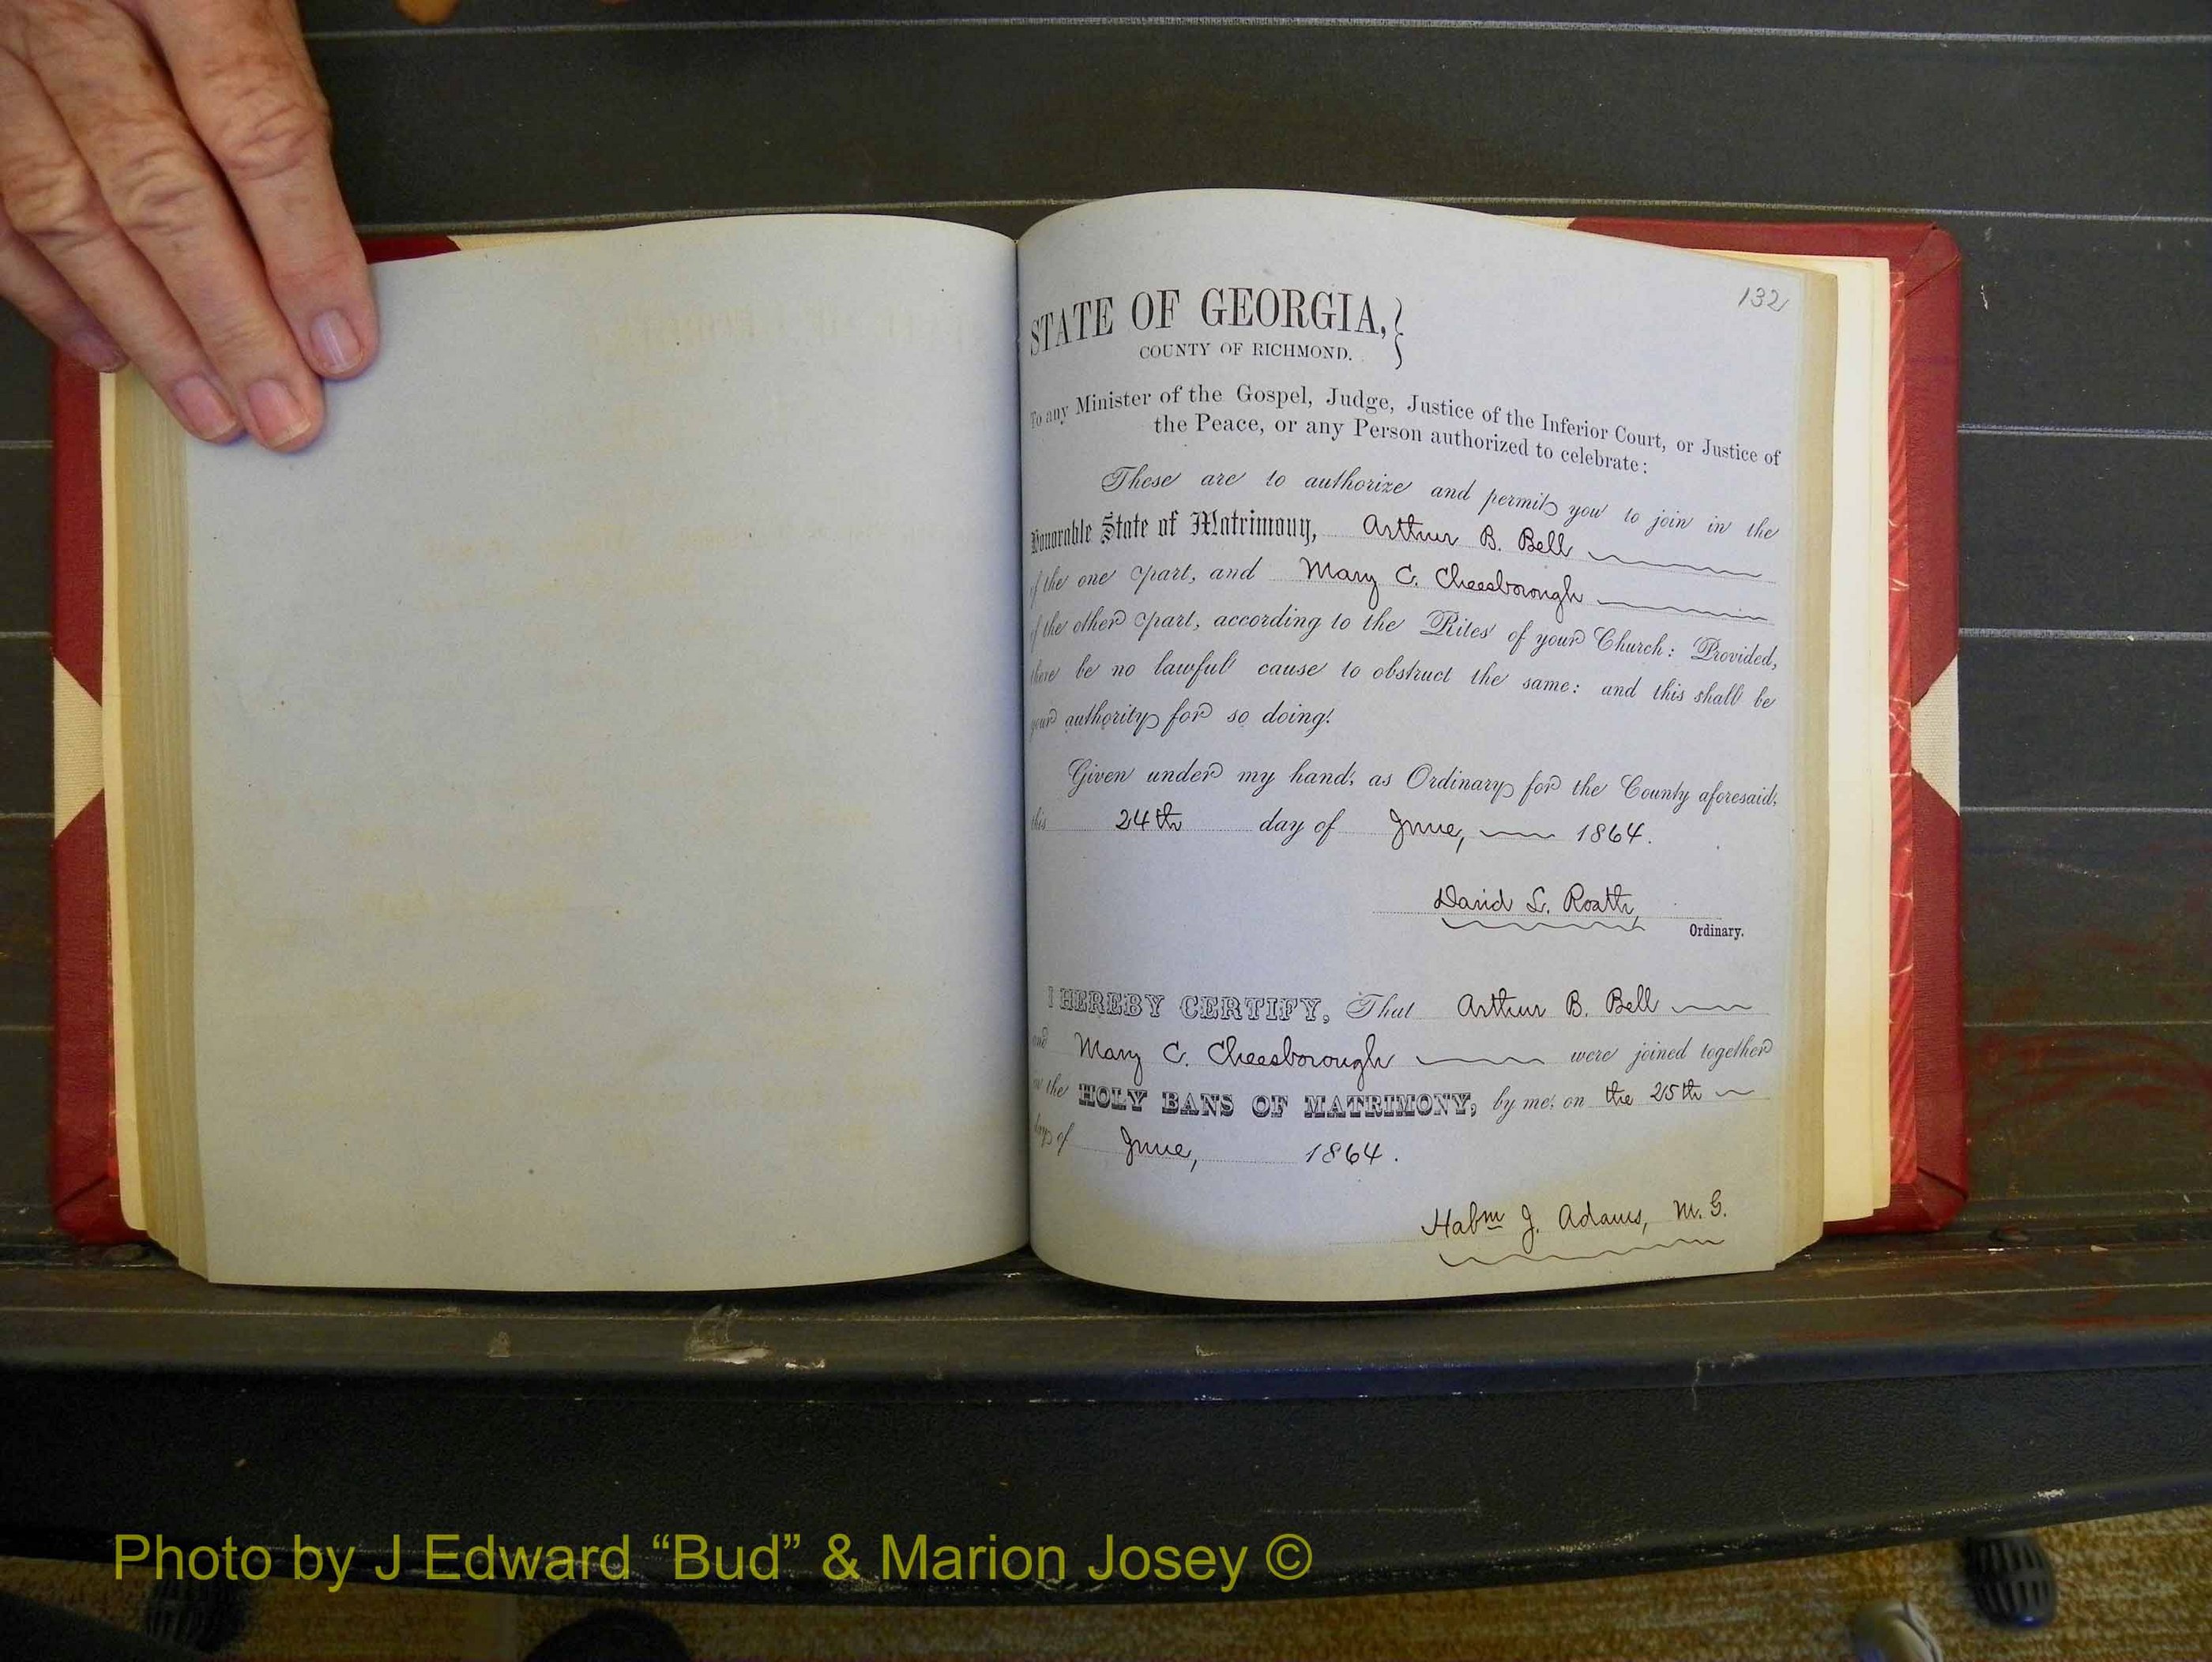 132
STATE OF GEORGIA,}
COUNTY OF RICHMOND.
To any Minister of the Gospel, Judge, Justice of the Inferior Court, or Justice of
the Peace, or any Person authorized to celebrate:
These are to authorize and permit you to join in the
Honorable State of Matrimony, Arthur B. Bell
of the one part, and Mary C. Cheesborough
of the other part, according to the Rites of your Church: Provided,
there be no lawful cause to obstruct the same: and this shall be
your authority for so doing.
Given under my hand, as Ordinary for the County aforesaid,
this 24th day of June, 1864.
David L. Roath,
Ordinary.
I HEREBY CERTIFY, That Arthur B. Bell
and Mary C. Cheesborough were joined together
in the HOLY BANS OF MATRIMONY, by me, on the 25th
day of June, 1864.
Habm J. Adams, M. G.
Photo by J Edward “Bud” & Marion Josey ©